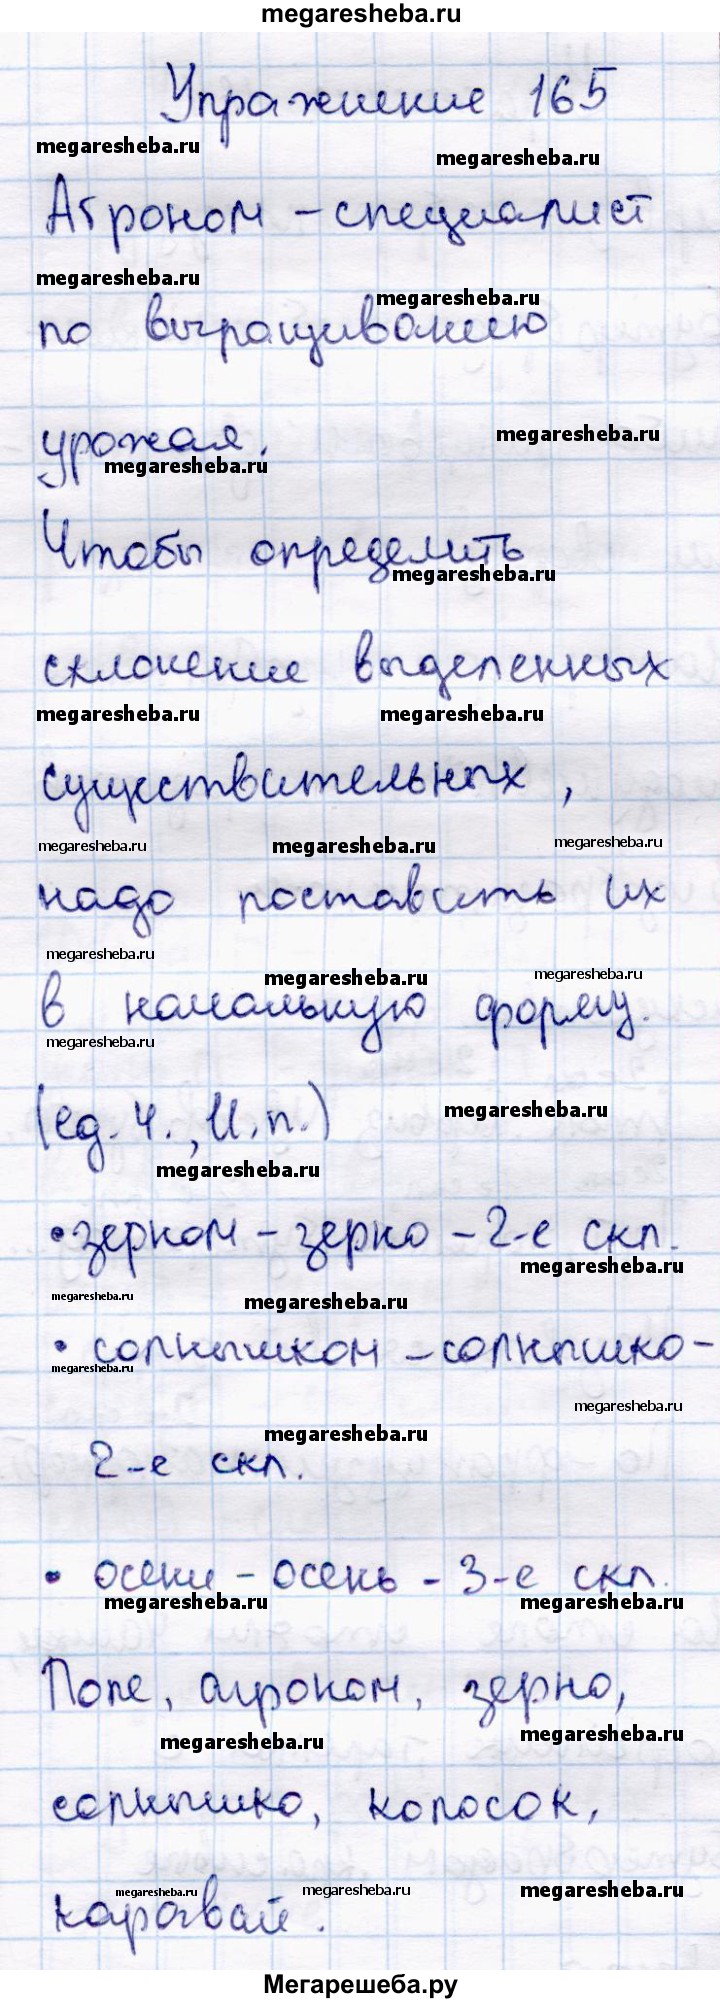 megaresheba.ru
Упражнение 165
megaresheba.ru
megaresheba.ru
Агроном - специалист
megaresheba.ru
megaresheba.ru
по выращиванию
урожая.
megaresheba.ru
megaresheba.ru
Чтобы определить
megaresheba.ru
склонение выделенных
megaresheba.ru megaresheba.ru
существительных,
megaresheba.ru megaresheba.ru megaresheba.ru
надо поставить их
megaresheba.ru megaresheba.ru megaresheba.ru
в начальную форму.
megaresheba.ru
(ед. ч., И. п.)
megaresheba.ru
megaresheba.ru
• зерном - зерно - 2-е скл.
megaresheba.ru
megaresheba.ru megaresheba.ru
• солнышком - солнышко -
megaresheba.ru
megaresheba.ru
megaresheba.ru
2-е скл.
• осени - осень - 3-е скл.
megaresheba.ru megaresheba.ru
Поле, агроном, зерно,
megaresheba.ru megaresheba.ru
солнышко, колосок,
megaresheba.ru megaresheba.ru megaresheba.ru
каравай.
Мегарешеба.ру